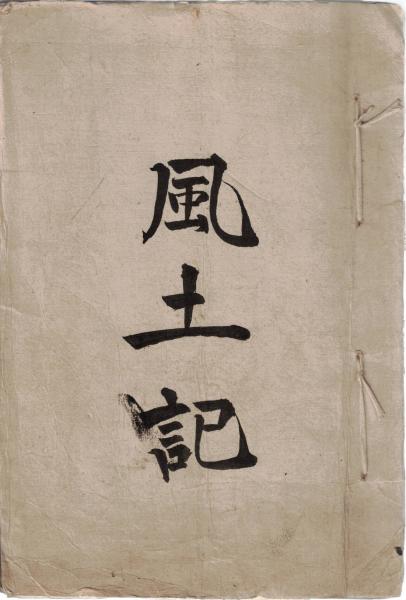 風土記